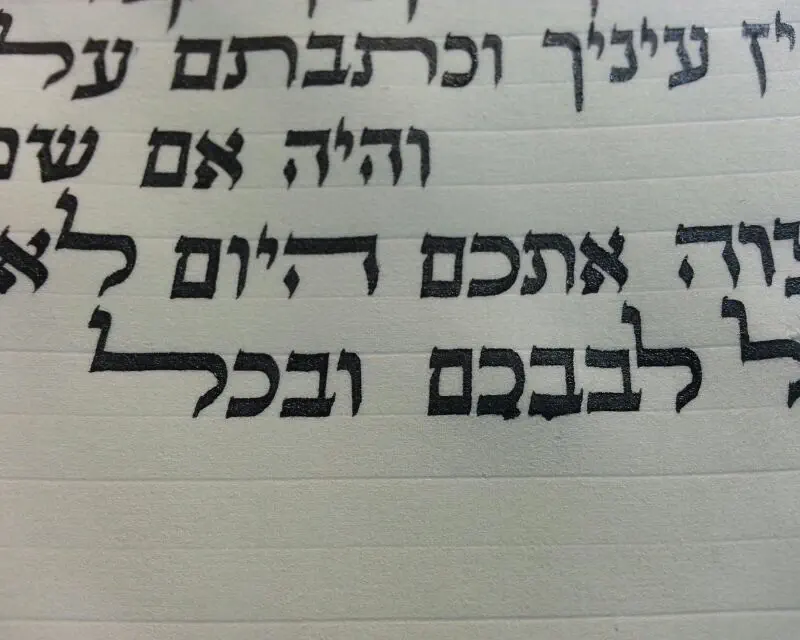 עיניך וכתבתם על
והיה אם
אתכם היום
לבבכם ובכל